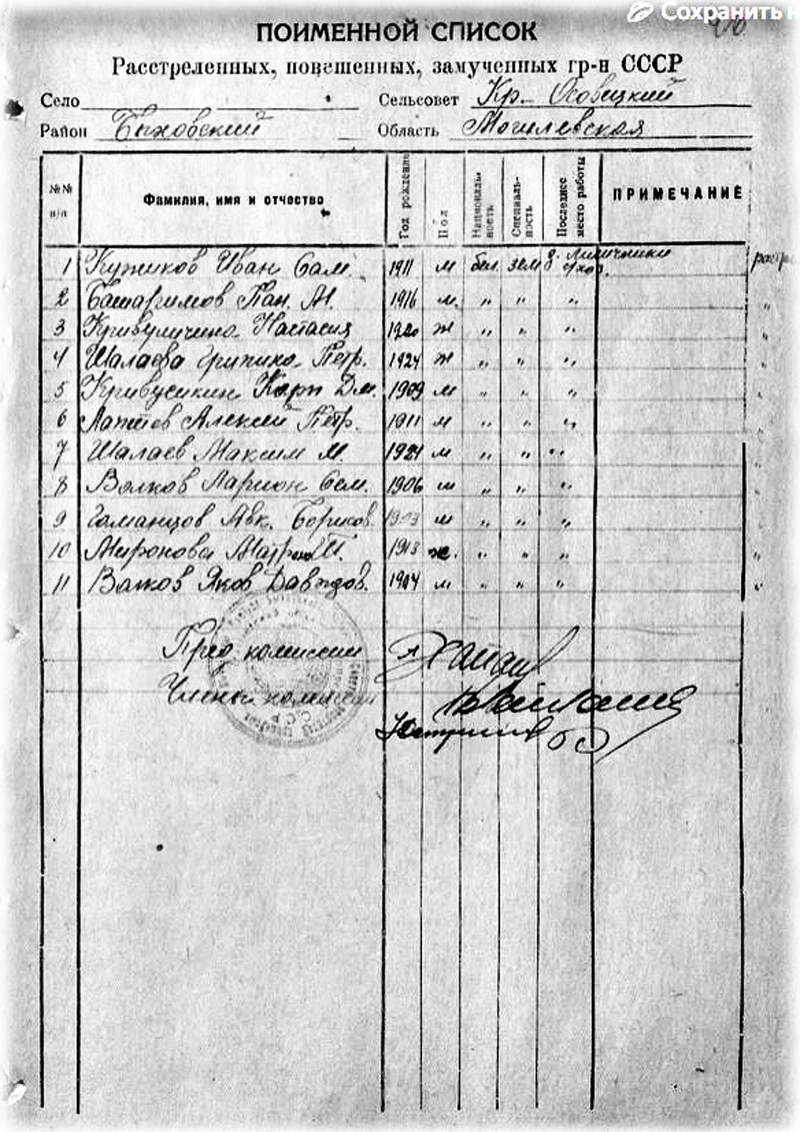 Сохранить н
ПОИМЕННОЙ СПИСОК
Расстреленных, повешенных, замученных гр-н СССР
Село Сельсовет Кр-Осовецкий
Район Быховский Область Могилевская
№№ п/п Фамилия, имя и отчество Год рождения Пол Националь-ность Специаль-ность Последнее место работы ПРИМЕЧАНИЕ
1 Кужиков Иван Сам. 1911 м бел. зем расстр
2 Башаримов Пан. М. 1916 м. " " " "
3 Настасия 1920 ж " " " "
4 Шалаева Петр. 1924 ж " " " "
5 Кривусикин Карп Дм. 1909 м " " " "
6 Лаптев Алексей Петр. 1911 м " " " "
7 Шалаев Максим М. 1921 м " " " "
8 Волков Ларион Сем. 1906 м " " " "
9 Гаманцов Авк. Борисов. 1903 м " " "
10 Миронова Матрона 1913 ж. " " " "
11 Волков Яков Давыдов. 1904 м " " " "
Пред комиссии
Члены комиссии